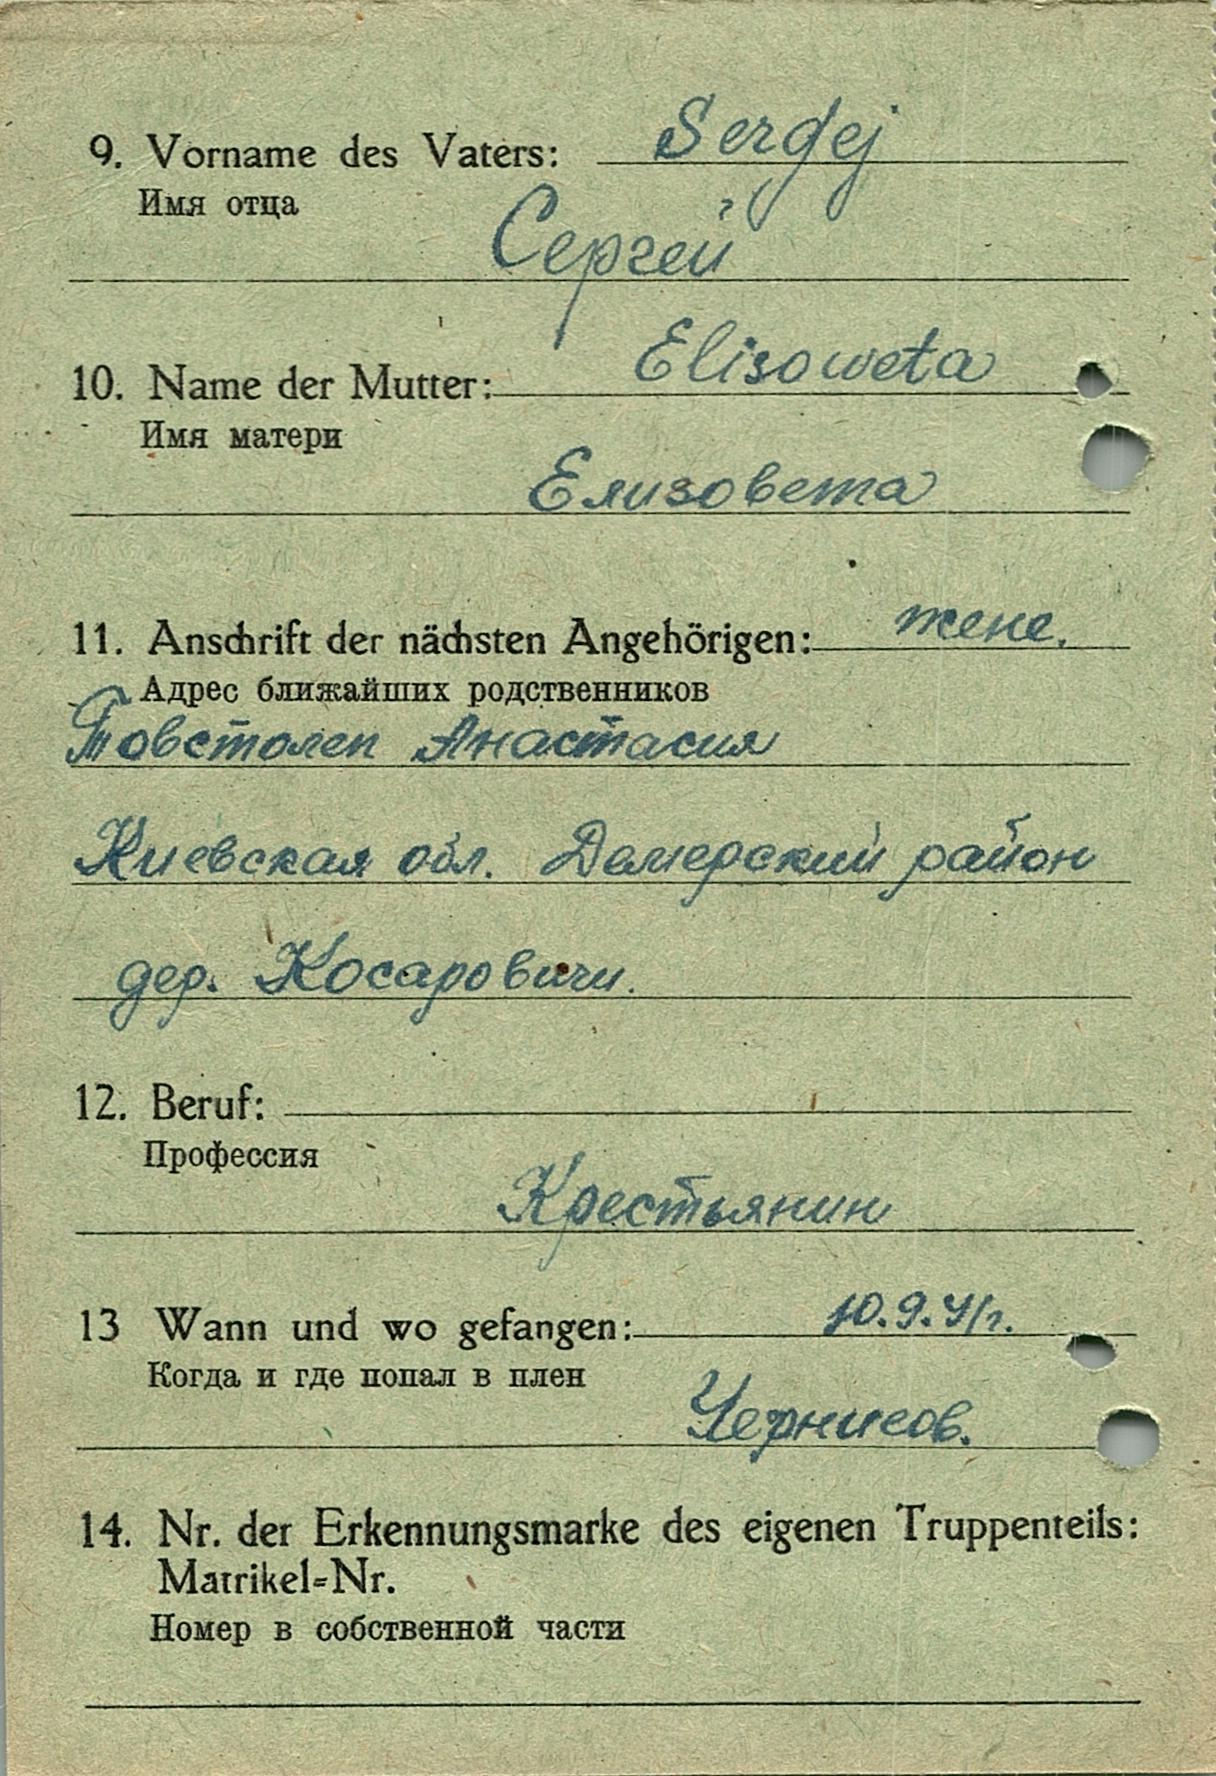 9. Vorname des Vaters: Sergej
Имя отца
Сергей
10. Name der Mutter: Elisoweta
Имя матери
Елизовета
11. Anschrift der nächsten Angehörigen: жене.
Адрес ближайших родственников
Товстолеп Анастасия
Киевская обл. Демерский район
дер. Косаровичи.
12. Beruf:
Профессия
Крестьянин
13 Wann und wo gefangen: 10.9.41г.
Когда и где попал в плен
Чернигов.
14. Nr. der Erkennungsmarke des eigenen Truppenteils:
Matrikel-Nr.
Номер в собственной части